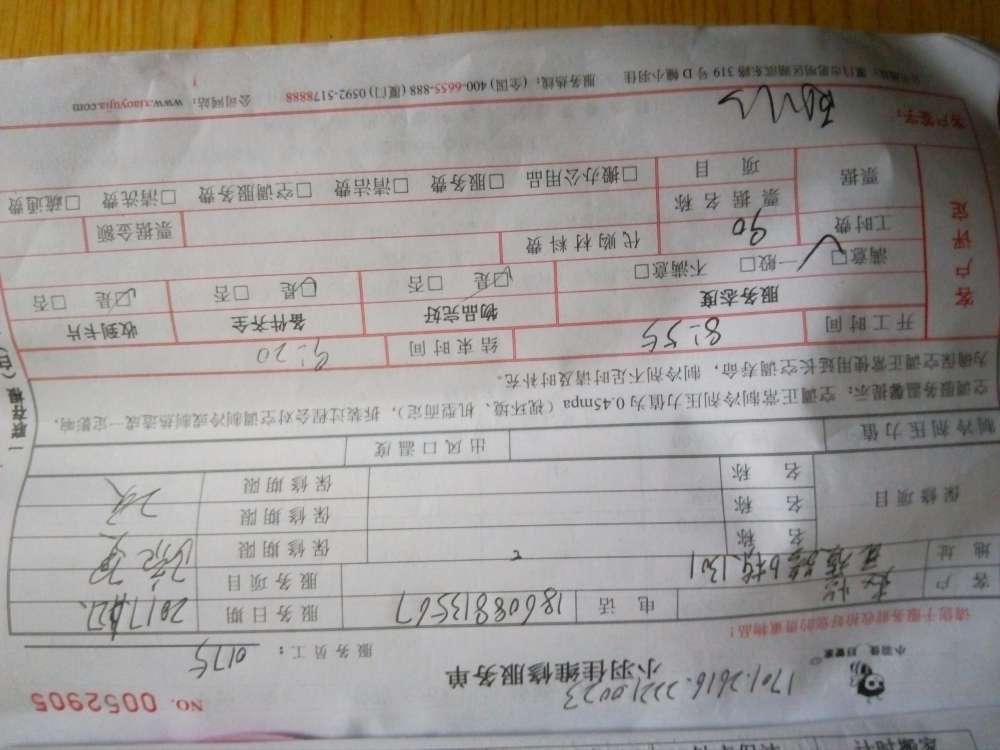 NO. 0052905
小羽佳 好管家
1701.2616.2221.0023
小羽佳维修服务单
服务员工: 0175
请您于服务前收拾好您的贵重物品!
客户
电话 18608813567
服务日期 2017
地址 6栋1301
服务项目
保修项目
名称 保修期限
名称 保修期限
名称 保修期限
制冷剂压力值 出风口温度
空调服务温馨提示:空调正常制冷剂压力值为0.45mpa(视环境、机型而定),拆装过程会对空调制冷或制热造成一定影响,
为确保空调正常使用延长空调寿命,制冷剂不足时请及时补充。
开工时间 8:55 结束时间 9:20
客户评定
服务态度 物品完好 备件齐全 收到卡片
满意□ 一般□ 不满意□ □是 □否 □是 □否 □是 □否
工时费 90 代购材料费
票据 票据名称 票据金额
项目 □搬办公用品 □服务费 □清洁费 □空调服务费 □清洗费 □疏通费
客户签字:
公司地址:厦门市思明区湖滨东路319号D幢小羽佳 服务热线:(全国)400-6655-888(厦门)0592-5178888 公司网站:www.xiaoyujia.com
一联存根